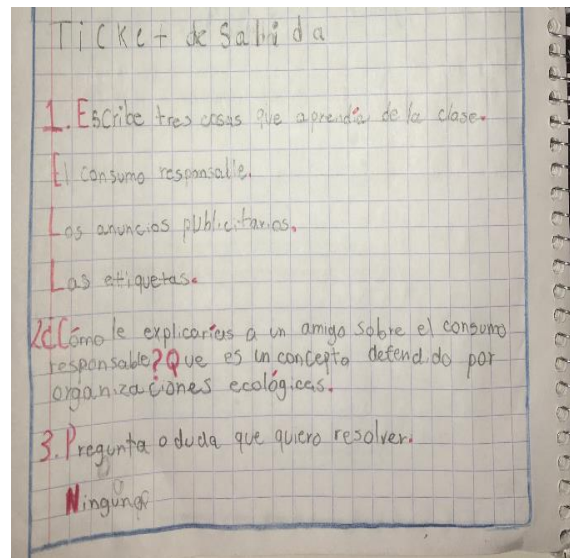 Ticket de Salida
1. Escribe tres cosas que aprendía de la clase.
El consumo responsable.
Los anuncios publicitarios.
Las etiquetas.
2. ¿Cómo le explicarías a un amigo sobre el consumo
responsable? Que es un concepto defendido por
organizaciones ecológicas.
3. Pregunta o duda que quiero resolver.
Ninguna